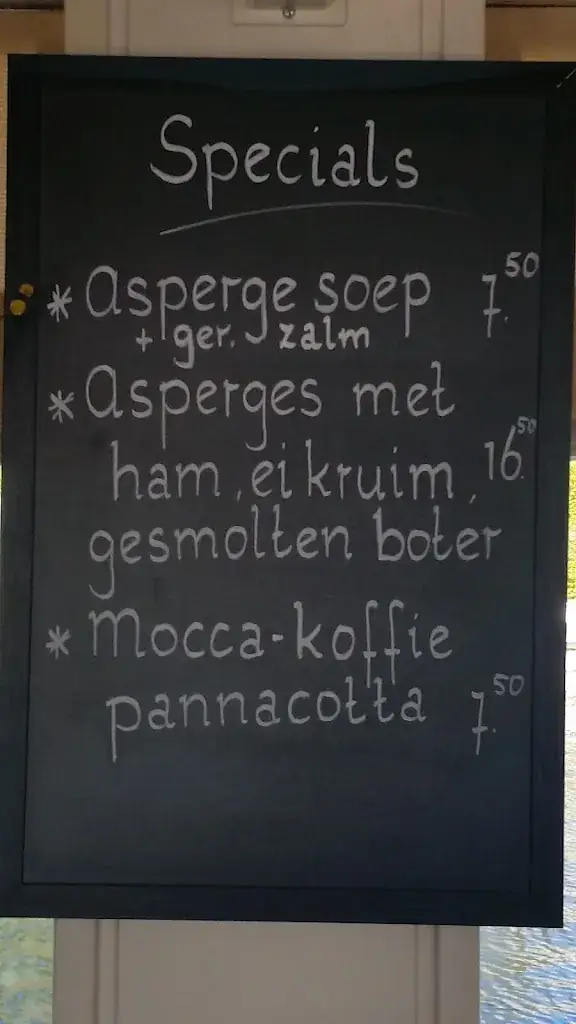 Specials
* Asperge soep 7.50
+ ger. zalm
* Asperges met
ham, ei kruim, 16.50
gesmolten boter
* Mocca-koffie
pannacotta 7.50